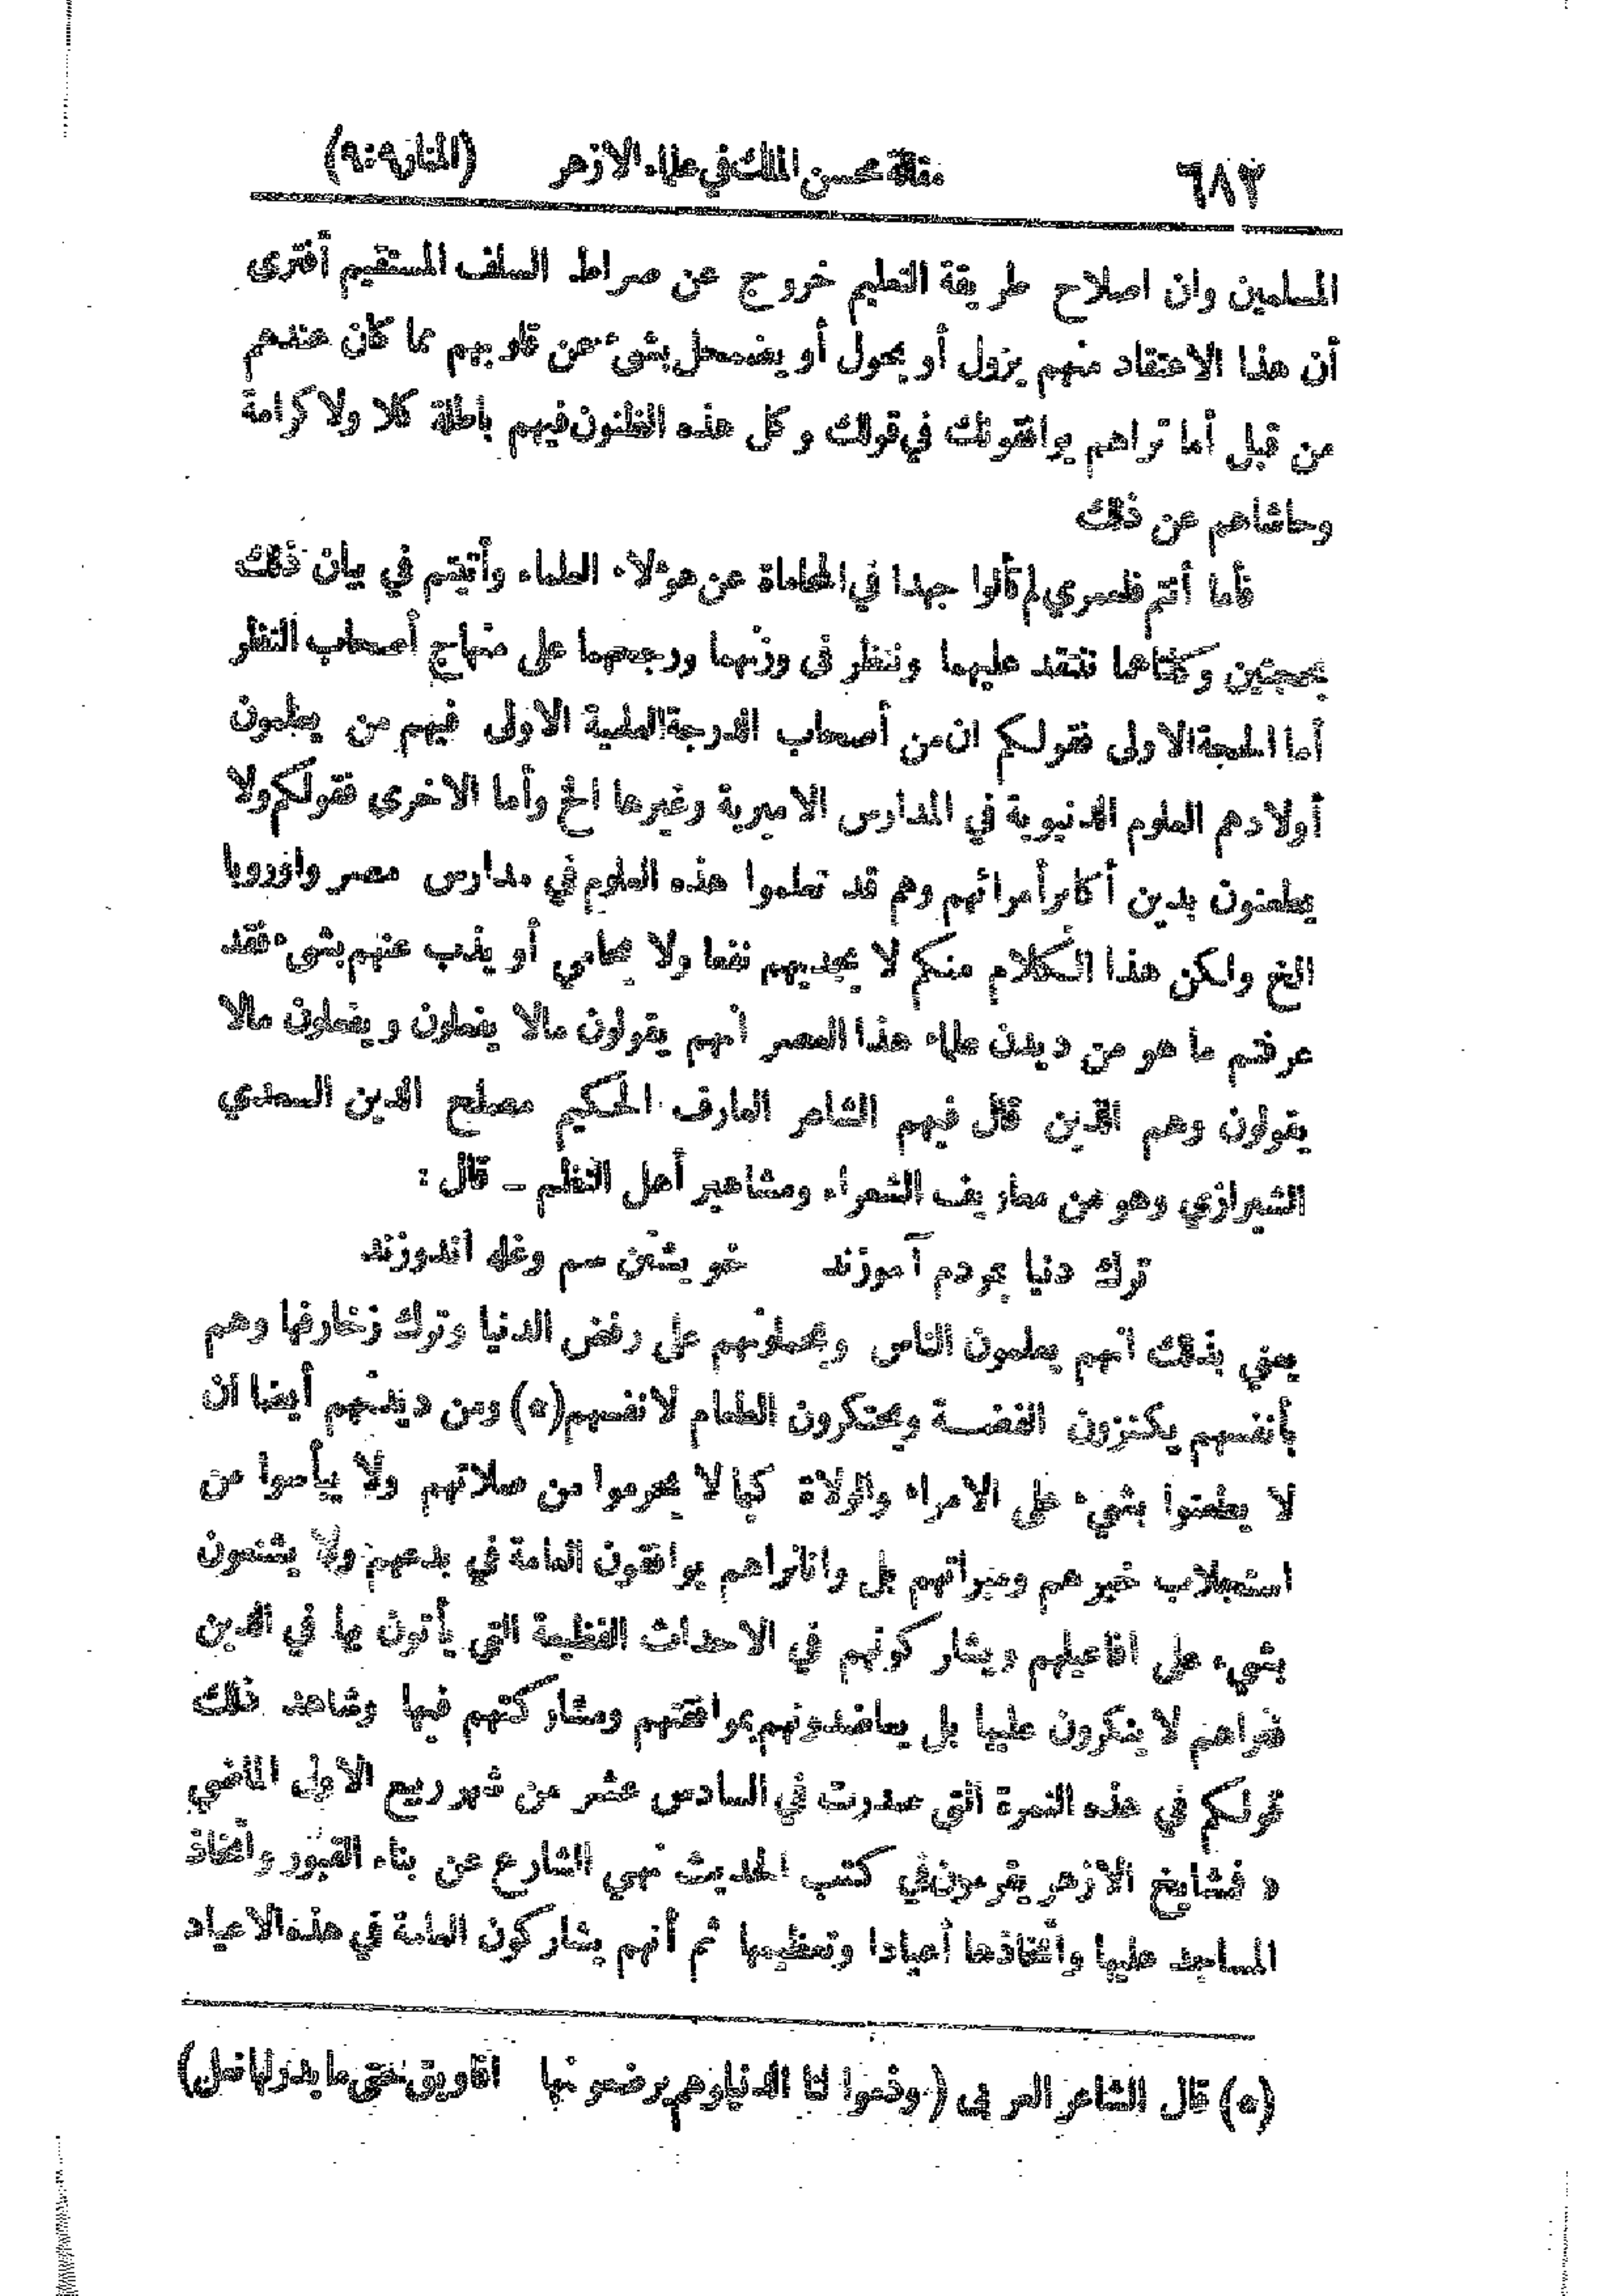 ٦٨٢ مقالة محسن الملك في علماء الازهر (المنار ٩:٩)
المسلمين وان اصلاح طريقة التعليم خروج عن صراط السلف المستقيم أفترى
أن هذا الاعتقاد منهم يزول أو يحول أو يضمحل بشيء عن قلوبهم مما كان عندهم
من قبل أما تراهم يوافقونك في قولك وكل هذه الظنون فيهم باطلة كلا ولا كرامة
وحاشاهم عن ذلك
فأما أنتم فلعمري لم تألوا جهدا في المحاماة عن هؤلاء العلماء وأتيتم في بيان ذلك
بحجتين وكلتاهما ننتقد عليهما وننظر في وزنهما ورجحهما على منهاج أصحاب النظر
أما الحجة الاولى فقولكم ان من أصحاب الدرجة العلمية الاولى فيهم من يعلمون
أولادهم العلوم الدنيوية في المدارس الاميرية وغيرها الخ وأما الاخرى فقولكم ولا
يطعنون بدين أكابر أمرائهم وهم قد تعلموا هذه العلوم في مدارس مصر واوروبا
الخ ولكن هذا الكلام منكم لا يجديهم نفعا ولا يحامي أو يذب عنهم بشيء فقد
عرفتم ما هو من ديدن علماء هذا العصر انهم يقولون مالا يفعلون ويفعلون مالا
يقولون وهم الذين قال فيهم الشاعر العارف الحكيم مصلح الدين السعدي
الشيرازي وهو من معاريف الشعراء ومشاهير أهل النظم ــ قال :
ترك دنيا بمردم آموزند خويشتن سيم وغله اندوزند
يعني بذلك انهم يعلمون الناس ويحملونهم على رفض الدنيا وترك زخارفها وهم
بأنفسهم يكتنزون الفضة ويحتكرون الطعام لانفسهم(*) ومن ديدنهم أيضا ان
لا يطعنوا بشيء على الامراء والولاة كيما لا يحرموا من صلاتهم ولا ييأسوا من
استجلاب خيرهم ومبراتهم بل وانا نراهم يوافقون العامة في بدعهم ولا يشنعون
بشيء على افاعيلهم ويشاركونهم في الاحداث الفظيعة التي يأتون بها في الدين
فتراهم لا ينكرون عليها بل يعاضدونهم بموافقتهم ومشاركتهم فيها وشاهد ذلك
قولكم في هذه النمرة التي صدرت في السادس عشر من شهر ربيع الاول الماضي
« فمشايخ الازهر يقرءون في كتب الحديث نهي الشارع عن بناء القبور واتخاذ
المساجد عليها واتخاذها أعيادا وتعظيمها ثم أنهم يشاركون العامة في هذه الاعياد
(*) قال الشاعر العربي (وذموا لنا الدنيا وهم يرضعونها افاويق حتى ما يدر لها ثعل)